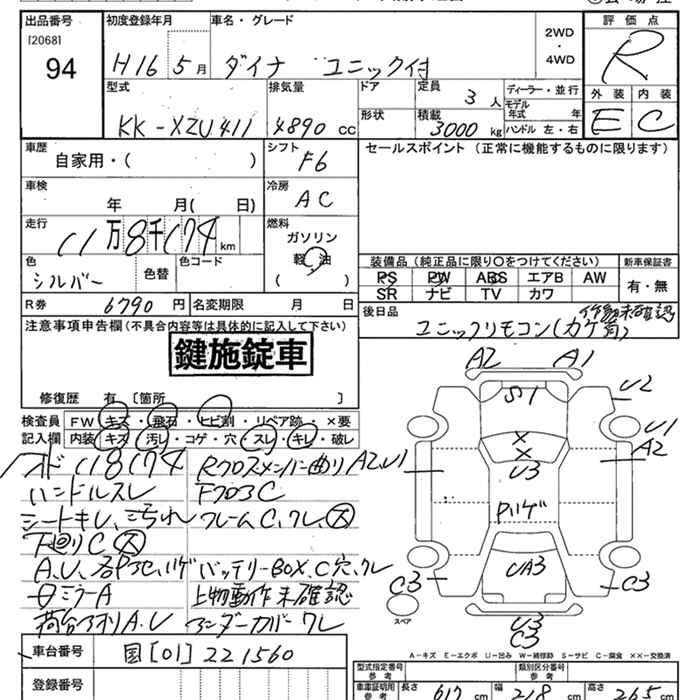 出品番号 初度登録年月 車名・グレード 評価点
[2068]
94
H16 5月 ダイナ ユニック付
2WD
・
4WD
R
型式 排気量 ドア 定員 3人 ディーラー・並行 外装 内装
KK-XZU411 4890cc 形状 積載 3000kg モデル年式 年 ハンドル 左・右 E C
車歴 自家用・( ) シフト F6 セールスポイント (正常に機能するものに限ります)
車検 年 月( 日) 冷房 AC
走行 11万8千174km 燃料 ガソリン 軽油 ( )
色 シルバー 色替 色コード
装備品 (純正品に限り〇をつけてください) 新車保証書
PS PW ABS エアB AW 有・無
SR ナビ TV カワ
R券 6790円 名変期限 月 日
後日品 ユニックリモコン(カゲ有) 作動未確認
注意事項申告欄(不具合内容等は具体的に記入して下さい)
鍵施錠車
修復歴 有 〔箇所 〕
検査員 FW キズ・飛石・ヒビ割・リペア跡・×要
記入欄 内装 キズ・汚レ・コゲ・穴・スレ・キレ・破レ
メオド 118174 Rクロスメンバー曲り A2,U1
ハンドルスレ FフロアC
シートキレ、ヨゴレ フレームC,ワレ,大
下廻りC 大
A.U、各P凹、ハゲ バッテリーBOX、C穴、ワレ
ミラーA 上物動作未確認
荷台アオリA.U アンダーカバーワレ
A2 A1
S1 U2
U1
A2
×
×
U3
Pハゲ
UA3
C3 C3
スペア
U3
C3
A-キズ E-エクボ U-凹み W-補修跡 S-サビ C-腐食 ××-交換済
車台番号 国[01]221560
型式指定番号 参考 類別区分番号 参考
登録番号
車庫証明用 参考 長さ 617cm 幅 218cm 高さ 265cm